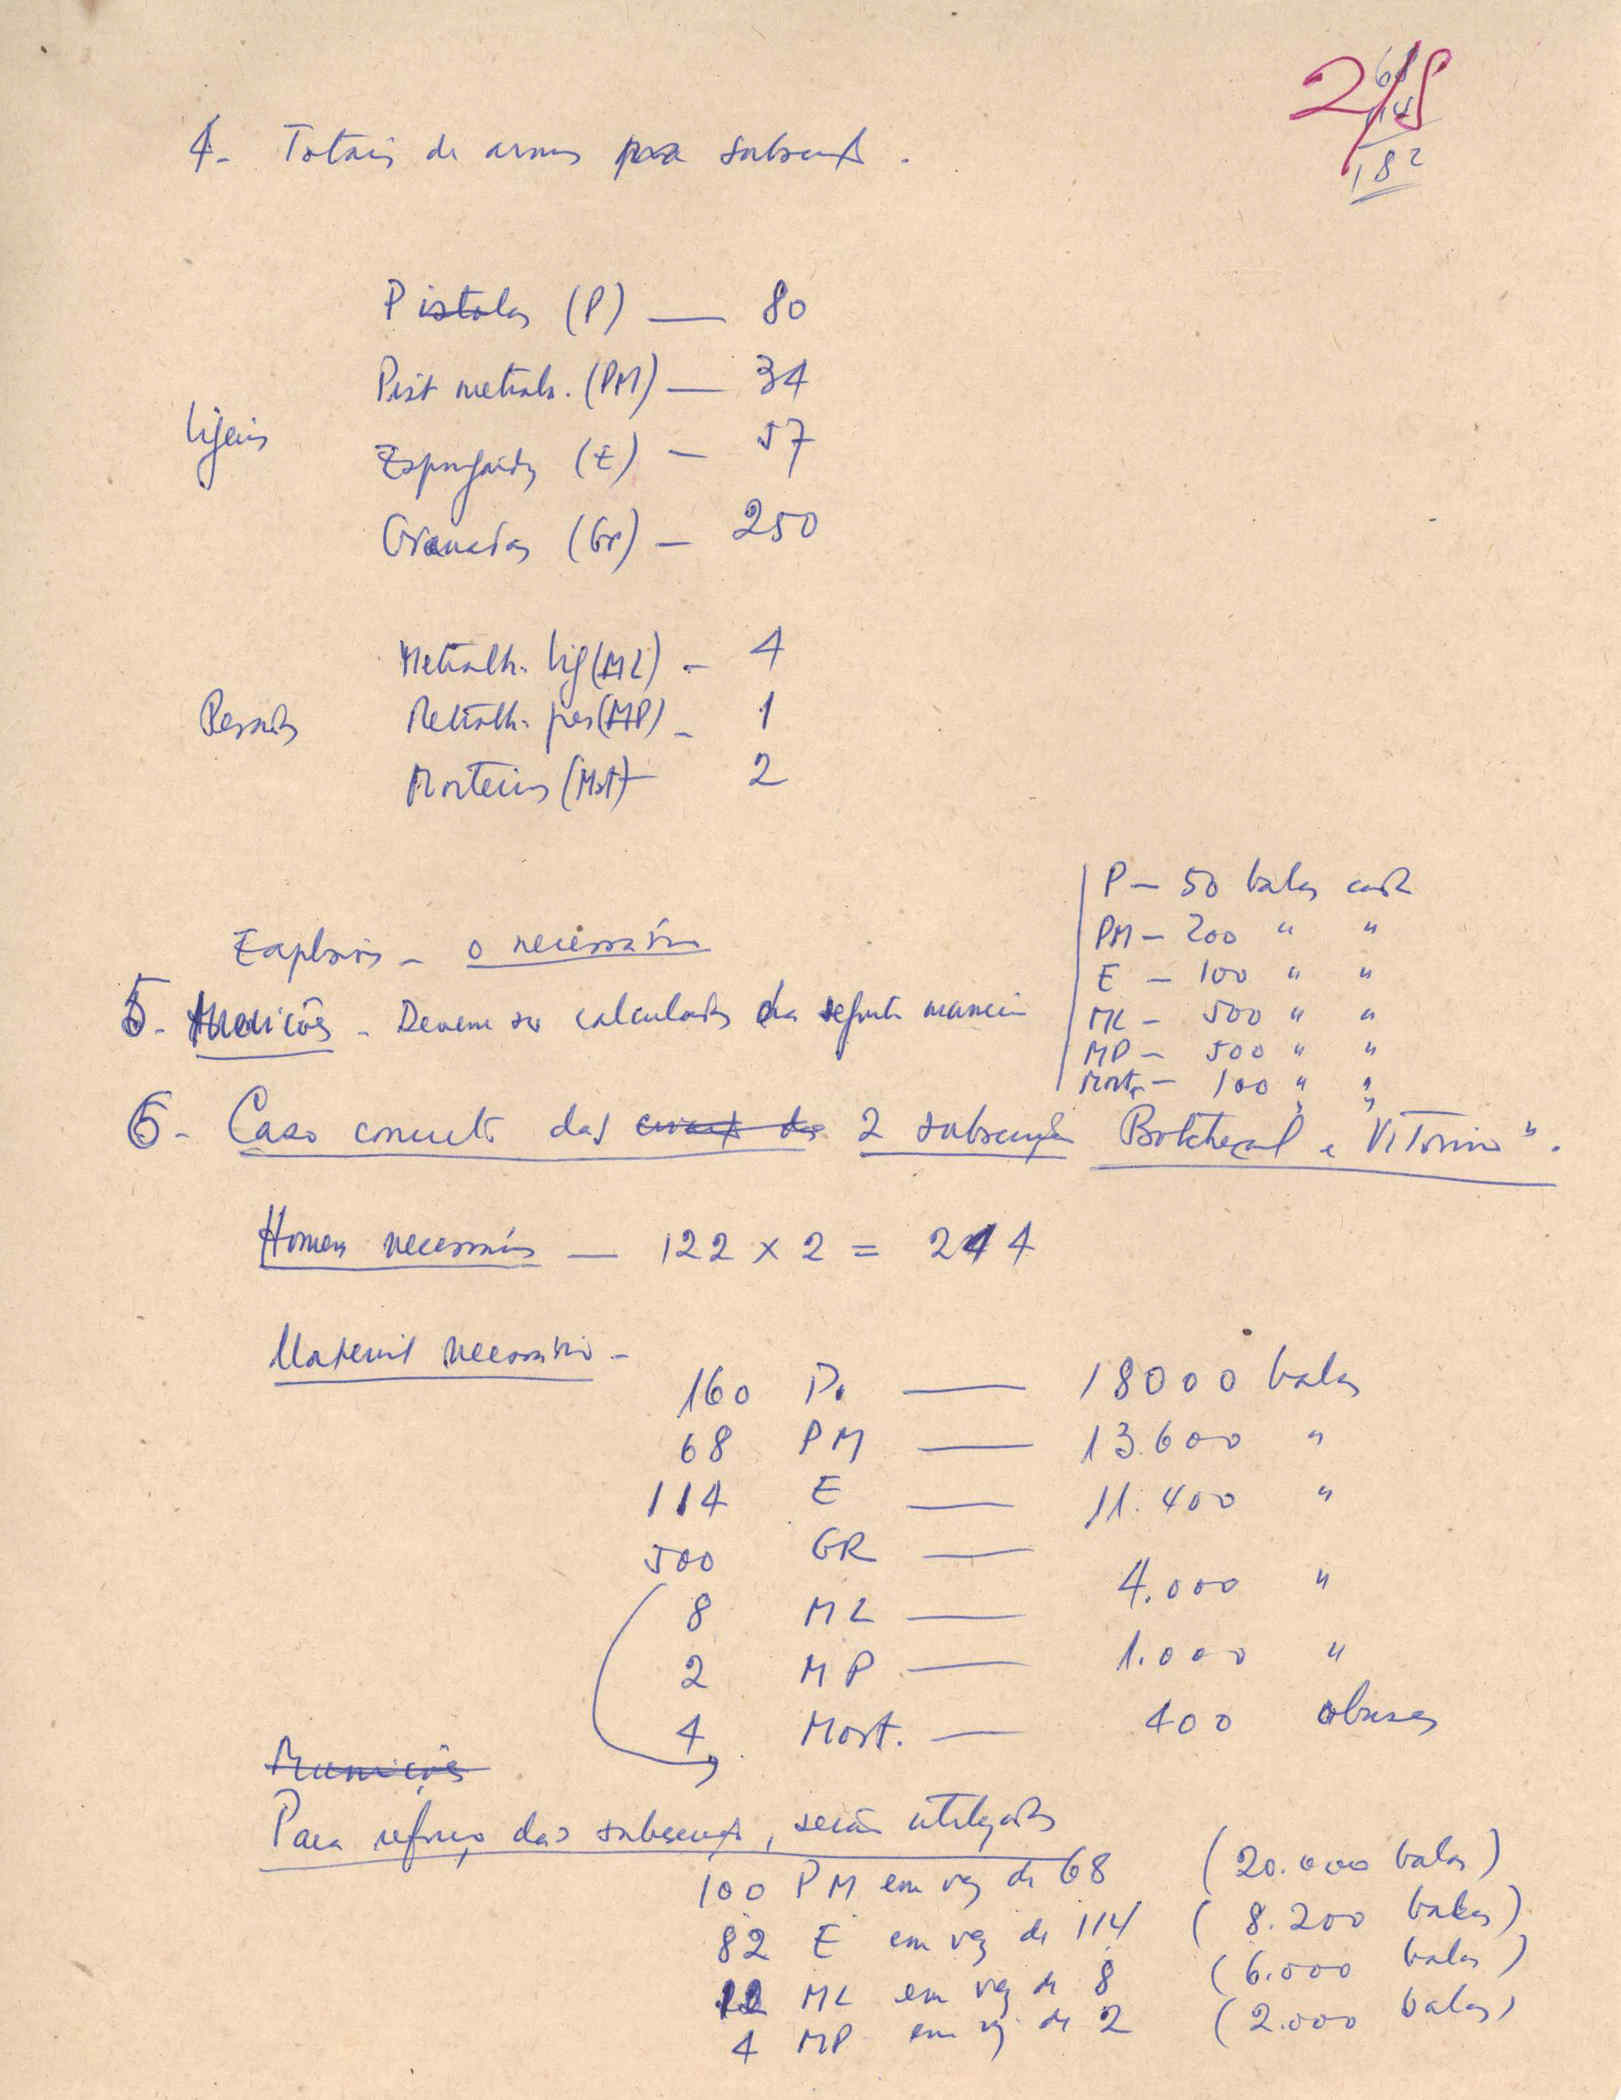 2/8
68
114
182
4- Totais de armas para subsecções.
Pistolas (P) — 80
Pist metralh. (PM) — 34
Ligeiras
Espingardas (E) — 57
Granadas (Gr) — 250
Metralh. lig (ML) - 4
Pesadas
Metralh. pes (MP) - 1
Morteiros (Mort) - 2
P — 50 balas cada
PM — 200 " "
Explosivos - o necessário
E — 100 " "
5- Munições - Devem ser calculadas da seguinte maneira
ML — 500 " "
MP — 500 " "
Mort. — 100 " "
6- Caso concreto das 2 subsecções Botchecol e Vitorino".
Homens necessários — 122 x 2 = 244
Material necessário -
160 P. — 18000 balas
68 PM — 13.600 "
114 E — 11.400 "
500 GR —
8 ML — 4.000 "
2 MP — 1.000 "
4 Mort. — 400 obuses
Munições
Para reforço das subsecções, serão utilizadas
100 PM em vez de 68 (20.000 balas)
82 E em vez de 114 (8.200 balas)
12 ML em vez de 8 (6.000 balas)
4 MP em vez de 2 (2.000 balas)